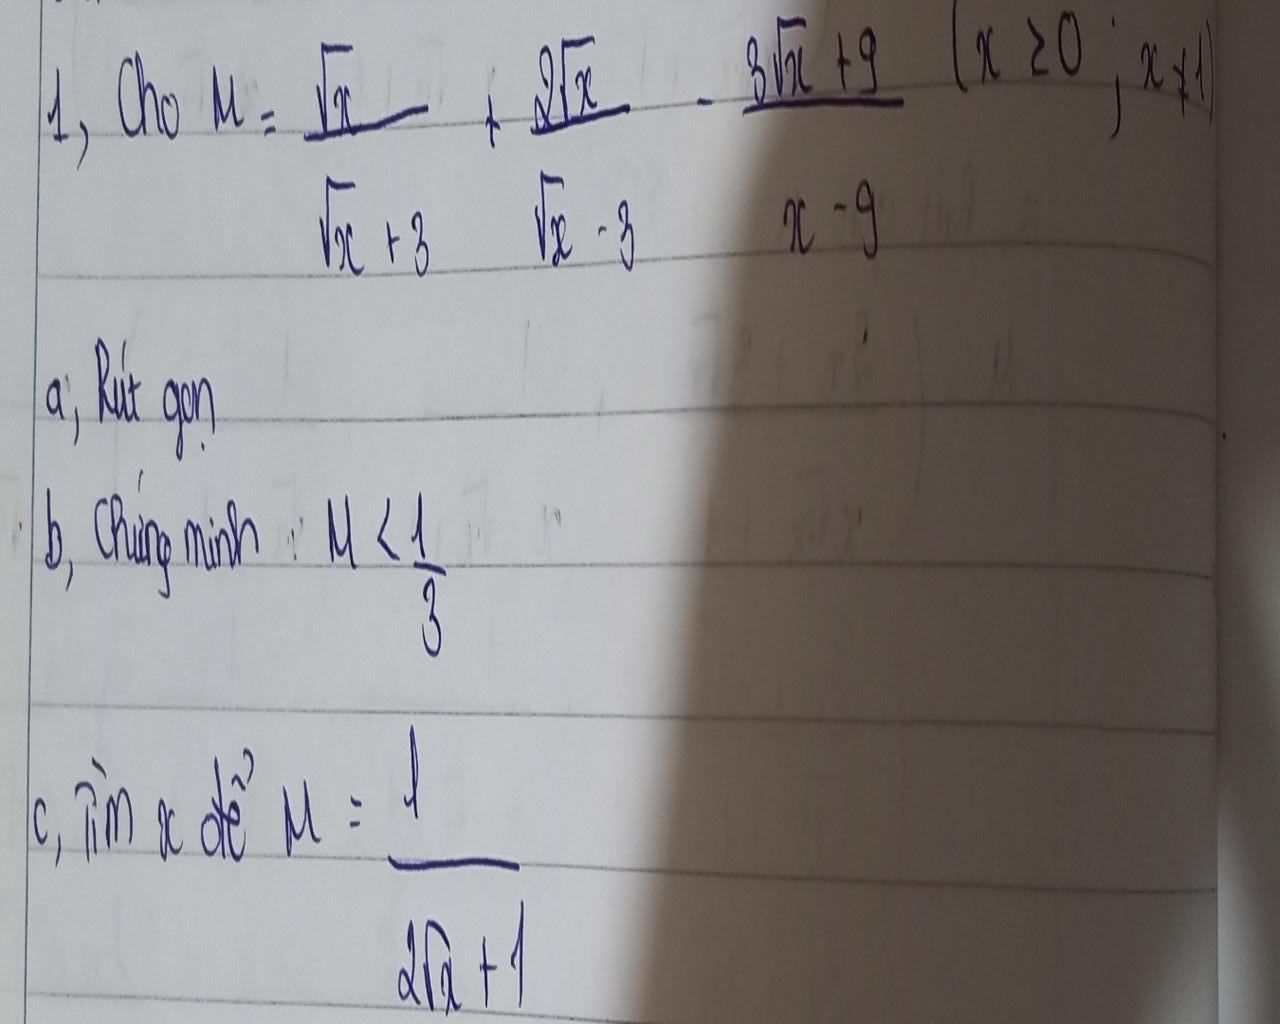 1, Cho M = √x / (√x + 3) + 2√x / (√x - 3) - (3√x + 9) / (x - 9) (x ≥ 0 ; x ≠ 1)
a, Rút gọn
b, Chứng minh : M < 1/3
c, Tìm x để M = 1 / (2√x + 1)